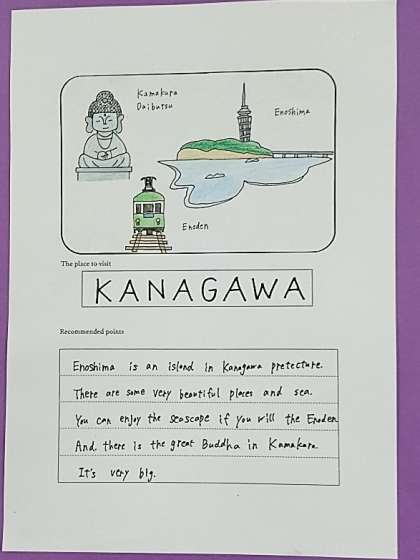 Kamakura
Daibutsu
Enoshima
Enoden
The place to visit
KANAGAWA
Recommended points
Enoshima is an island in Kanagawa pretecture.
There are some very beautiful places and sea.
You can enjoy the seascape if you will the Enoden
And there is the great Buddha in Kamakura
It's very big.